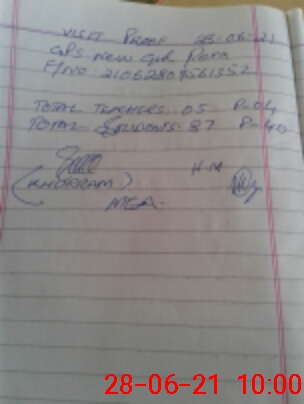 VISIT PROOF 28-06-21
GPS NEW GUL
F/NO. 21062807561352
TOTAL TEACHERS. 05 P-04
TOTAL STUDENTS. 87 P-40
H.M
(KHURRAM)
MEA.
28-06-21 10:00